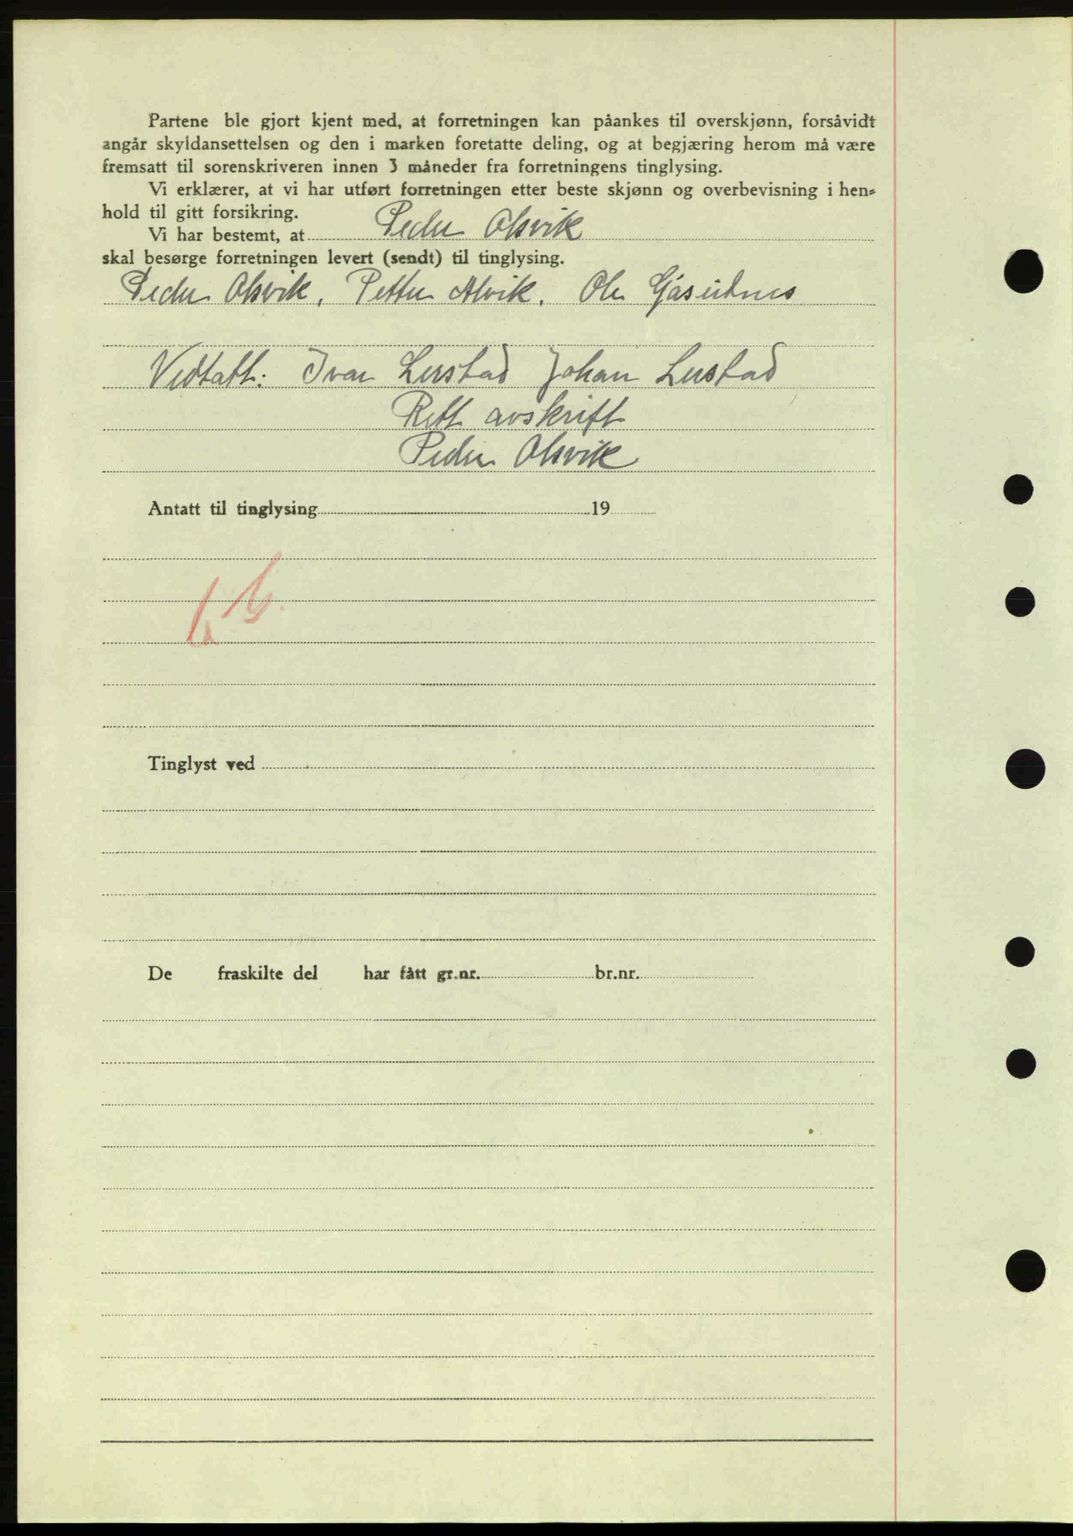 Partene ble gjort kjent med, at forretningen kan påankes til overskjønn, forsåvidt
angår skyldansettelsen og den i marken foretatte deling, og at begjæring herom må være
fremsatt til sorenskriveren innen 3 måneder fra forretningens tinglysing.
Vi erklærer, at vi har utført forretningen etter beste skjønn og overbevisning i hen-
hold til gitt forsikring.
Vi har bestemt, at Peder Olsvik
skal besørge forretningen levert (sendt) til tinglysing.
Peder Olsvik, Petter Alvik, Ole Gåseidnes
Vedtatt: Ivar Lerstad Johan Lerstad
Rett avskrift
Peder Olsvik
Antatt til tinglysing 19
Tinglyst ved
De fraskilte del har fått gr.nr. br.nr.